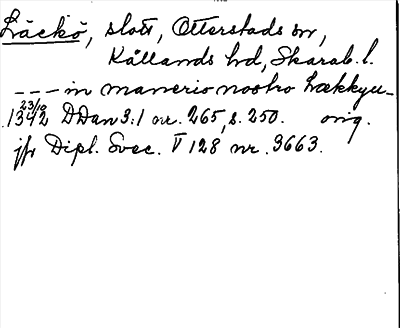 Läckö, slott, Otterstads sn,
Kållands hd, Skarab. l.
--- in manerio nostro Lækkyu-
23/10
1342 DDan 3:1 nr. 265, s. 250. orig.
jfr Dipl. Svec. V 128 nr. 3663.